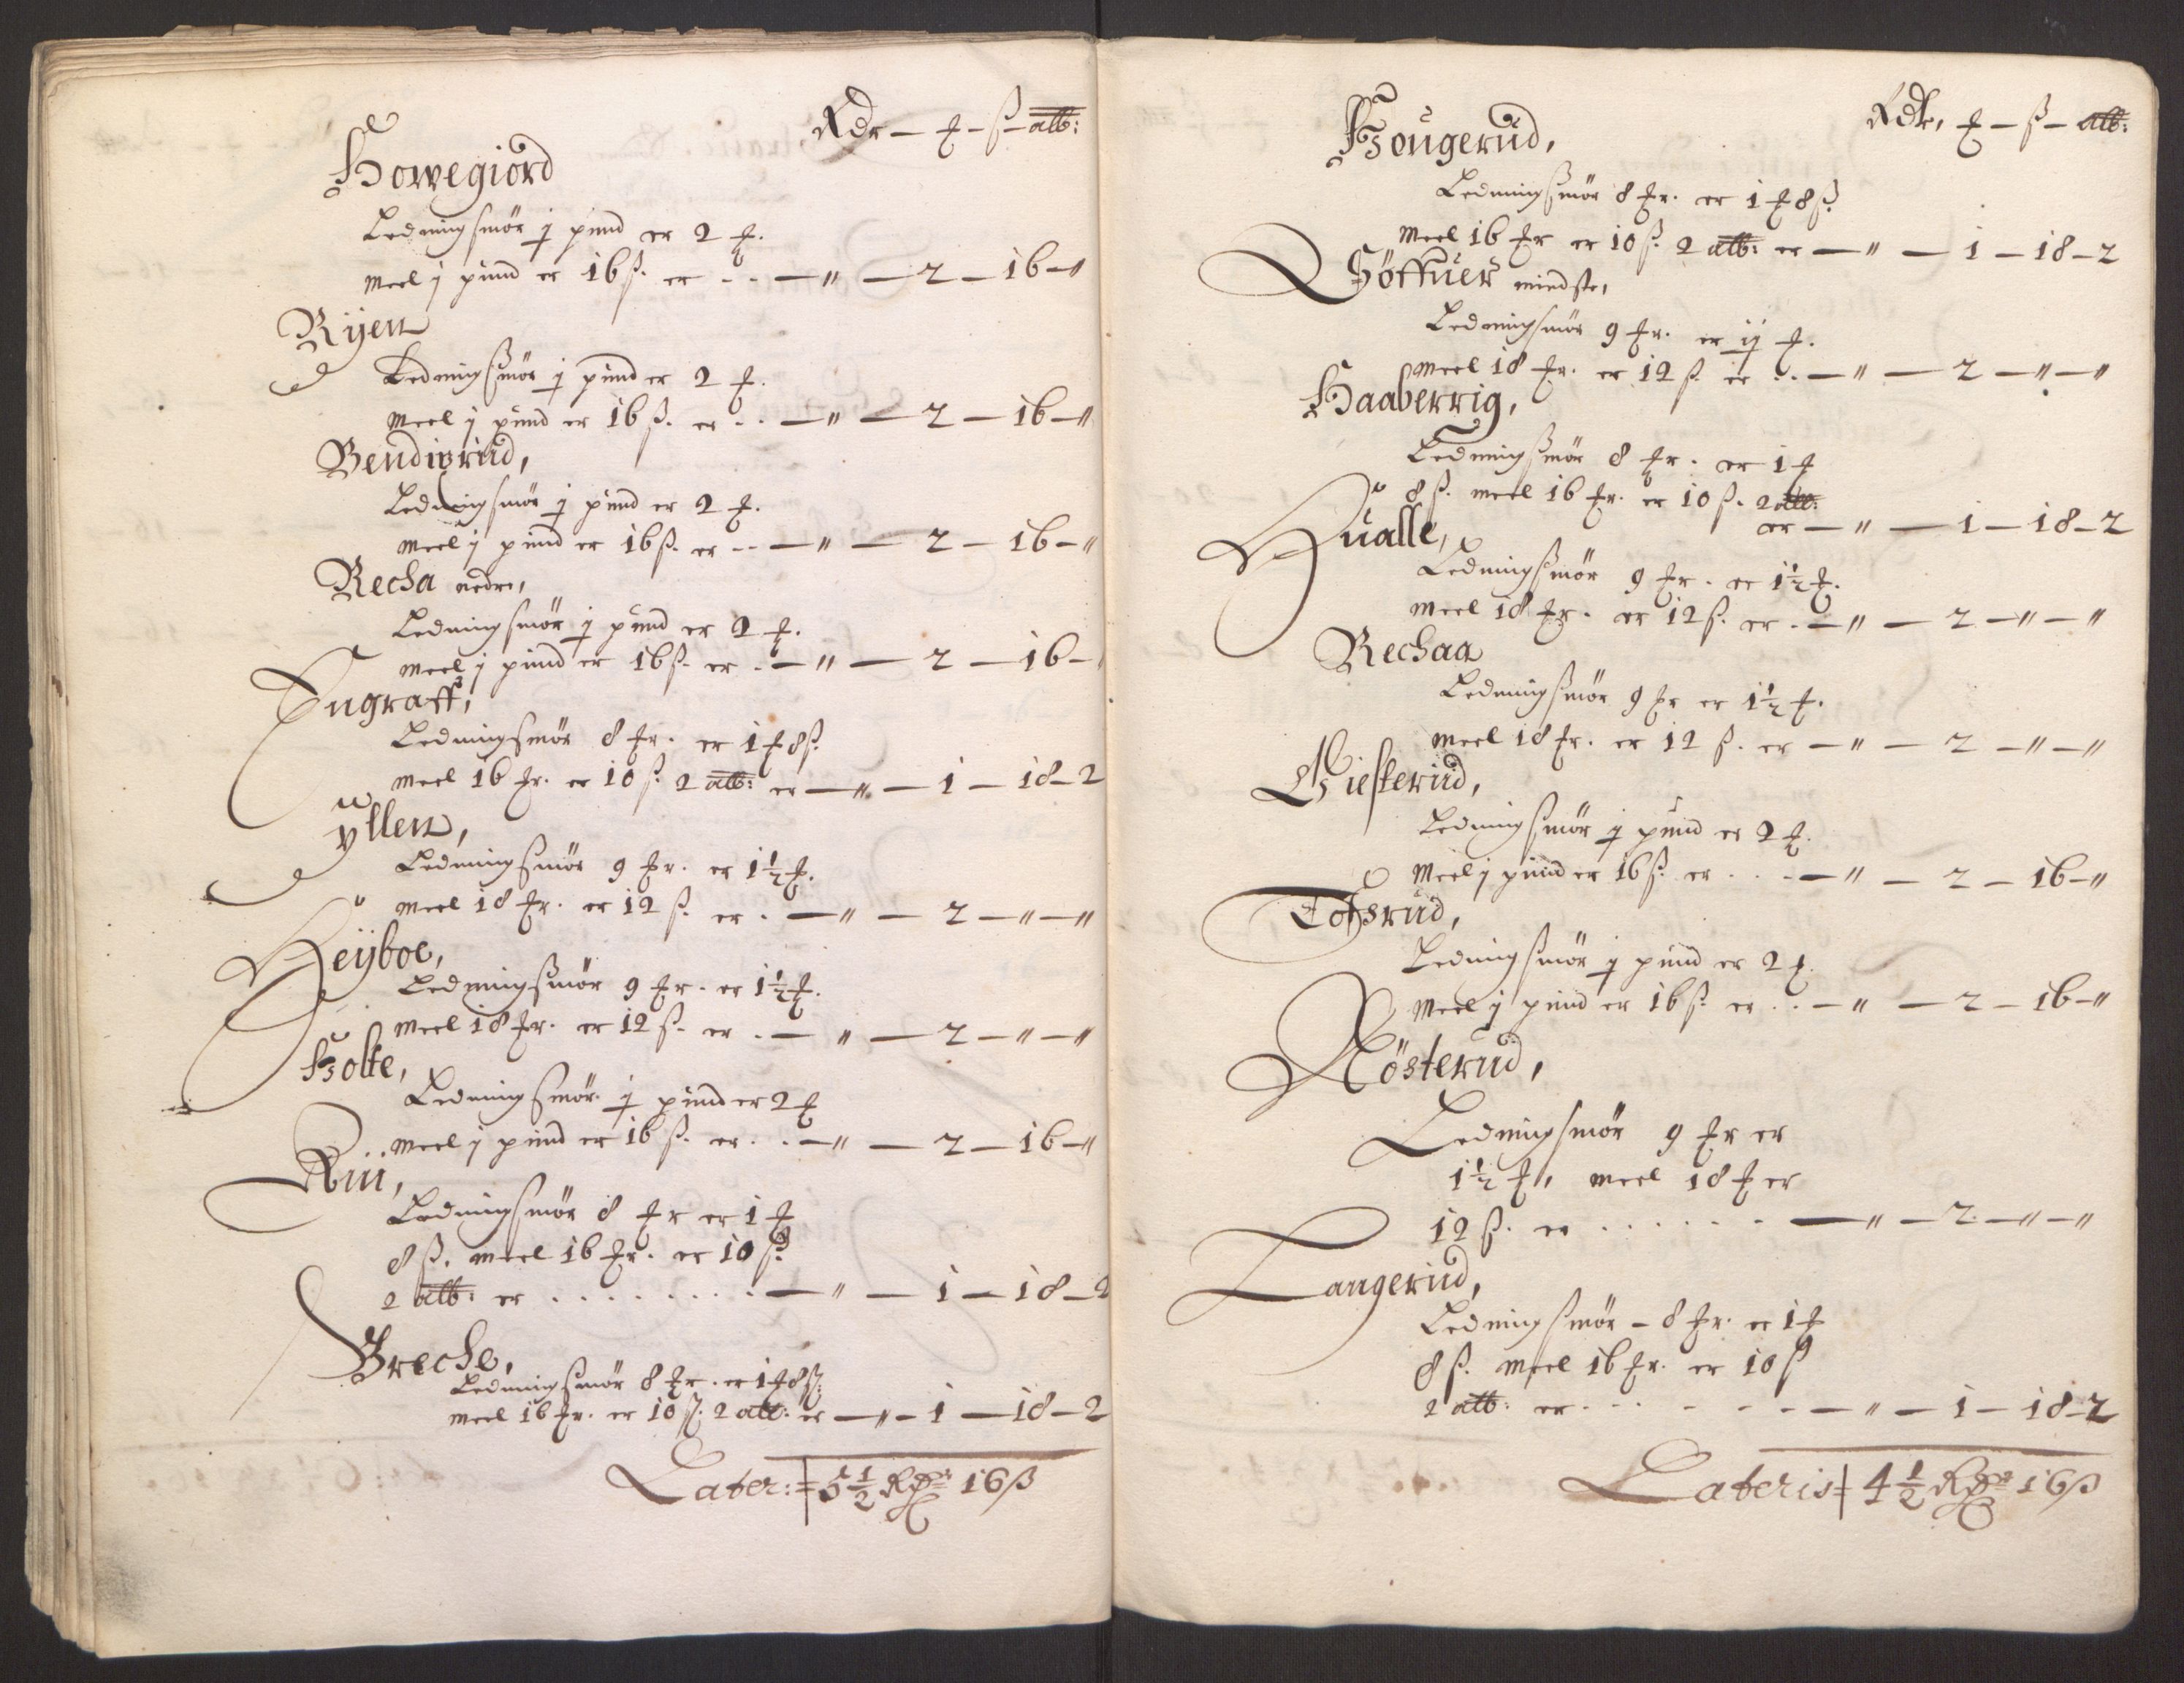 Rdr — ⨍ – ß – alb:
Howegiord
Ledningsmör j pund er 2 ⨍.
Meel j pund er 16 ß. er – – — " — 2 — 16 — "
Rijen
Ledningsmör j pund er 2 ⨍.
Meel j pund er 16 ß. er . . — " — 2 — 16 — "
Bendixrud,
Ledningsmör j pund er 2 ⨍.
Meel j pund er 16 ß. er – – — " — 2 — 16 — "
Recha nedre,
Ledningsmör j pund er 2 ⨍.
Meel j pund er 16 ß. er . — " — 2 — 16 —
Engraff,
Ledningsmör 8 ⨍r. er 1 ⨍ 8 ß.
Meel 16 ⨍r. er 10 ß. 2 alb: er — " — 1 — 18 – 2
ÿllen,
Ledningsmör 9 ⨍r. er 1½ ⨍.
Meel 18 ⨍r. er 12 ß. er . — " — 2 — " — "
Heijboe,
Ledningsmör 9 ⨍r. er 1½ ⨍.
Meel 18 ⨍r. er 12 ß. er . — " — 2 — " — "
Holte,
Ledningsmör j pund er 2 ⨍
Meel j pund er 16 ß. er . . — " — 2 — 16 — "
Rui,
Ledningsmör 8 ⨍r er 1 ⨍
8 ß. Meel 16 ⨍r. er 10 ß.
2 alb: er . . . . . . . . — " — 1 — 18 – 2
Breche,
Ledningsmör 8 ⨍r. er 1 ⨍ 8 ß.
Meel 16 ⨍r. er 10 ß. 2 alb: er — " – 1 — 18 – 2
Later: 5½ Rdr 16 ß
Rdr, ⨍ — ß — alb:
Hougerud,
Ledningsmör 8 ⨍r. er 1 ⨍ 8 ß.
Meel 16 ⨍r er 10 ß. 2 alb: er — " — 1 — 18 – 2
Höffuer mindste,
Ledningsmör 9 ⨍r. er ij ⨍.
Meel 18 ⨍r. er 12 ß er . . — " — 2 — " — "
Haaberrig,
Ledningsmör 8 ⨍r. er 1 ⨍
8 ß. meel 16 ⨍r. er 10 ß. 2 alb:
er — " — 1 — 18 – 2
Hualle,
Ledningsmör 9 ⨍r. er 1½ ⨍.
Meel 18 ⨍r. er 12 ß. er . — " — 2 — " — "
Rechaa
Ledningsmör 9 ⨍r er 1½ ⨍.
Meel 18 ⨍r. er 12 ß. er — " — 2 — " — "
Giesterud,
Ledningsmör j pund er 2 ⨍.
Meel j pund er 16 ß. er . . — " — 2 — 16 — "
Tofsrud,
Ledningsmör j pund er 2 ⨍.
Meel j pund er 16 ß. er . . — " — 2 — 16 — "
Rösterud,
Ledningsmör 9 ⨍r er
1½ ⨍, meel 18 ⨍ er
12 ß. er . . . . . . — " — 2 — " — "
Langerud,
Ledningsmör – 8 ⨍r. er 1 ⨍
8 ß. Meel 16 ⨍r. er 10 ß
2 alb: er . . . – – – — " — 1 — 18 – 2
Lateris 4½ Rdr 16 ß